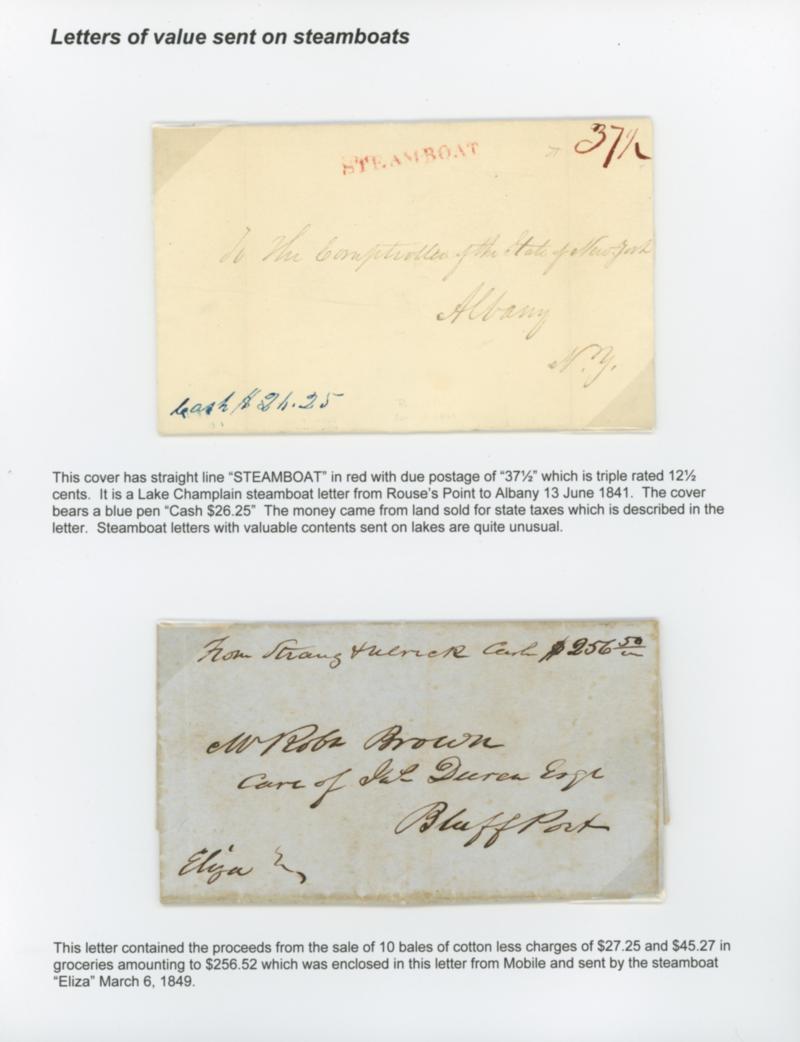 Letters of value sent on steamboats
STEAMBOAT
37½
To The Comptroller of the State of New York
Albany
N.Y.
Cash $26.25
This cover has straight line “STEAMBOAT” in red with due postage of “37½” which is triple rated 12½
cents.  It is a Lake Champlain steamboat letter from Rouse’s Point to Albany 13 June 1841.  The cover
bears a blue pen “Cash $26.25”  The money came from land sold for state taxes which is described in the
letter.  Steamboat letters with valuable contents sent on lakes are quite unusual.
From Strang & Cash $256 50
Mr Robt Brown
Care of Esqr
Bluff Port
Eliza
This letter contained the proceeds from the sale of 10 bales of cotton less charges of $27.25 and $45.27 in
groceries amounting to $256.52 which was enclosed in this letter from Mobile and sent by the steamboat
“Eliza” March 6, 1849.